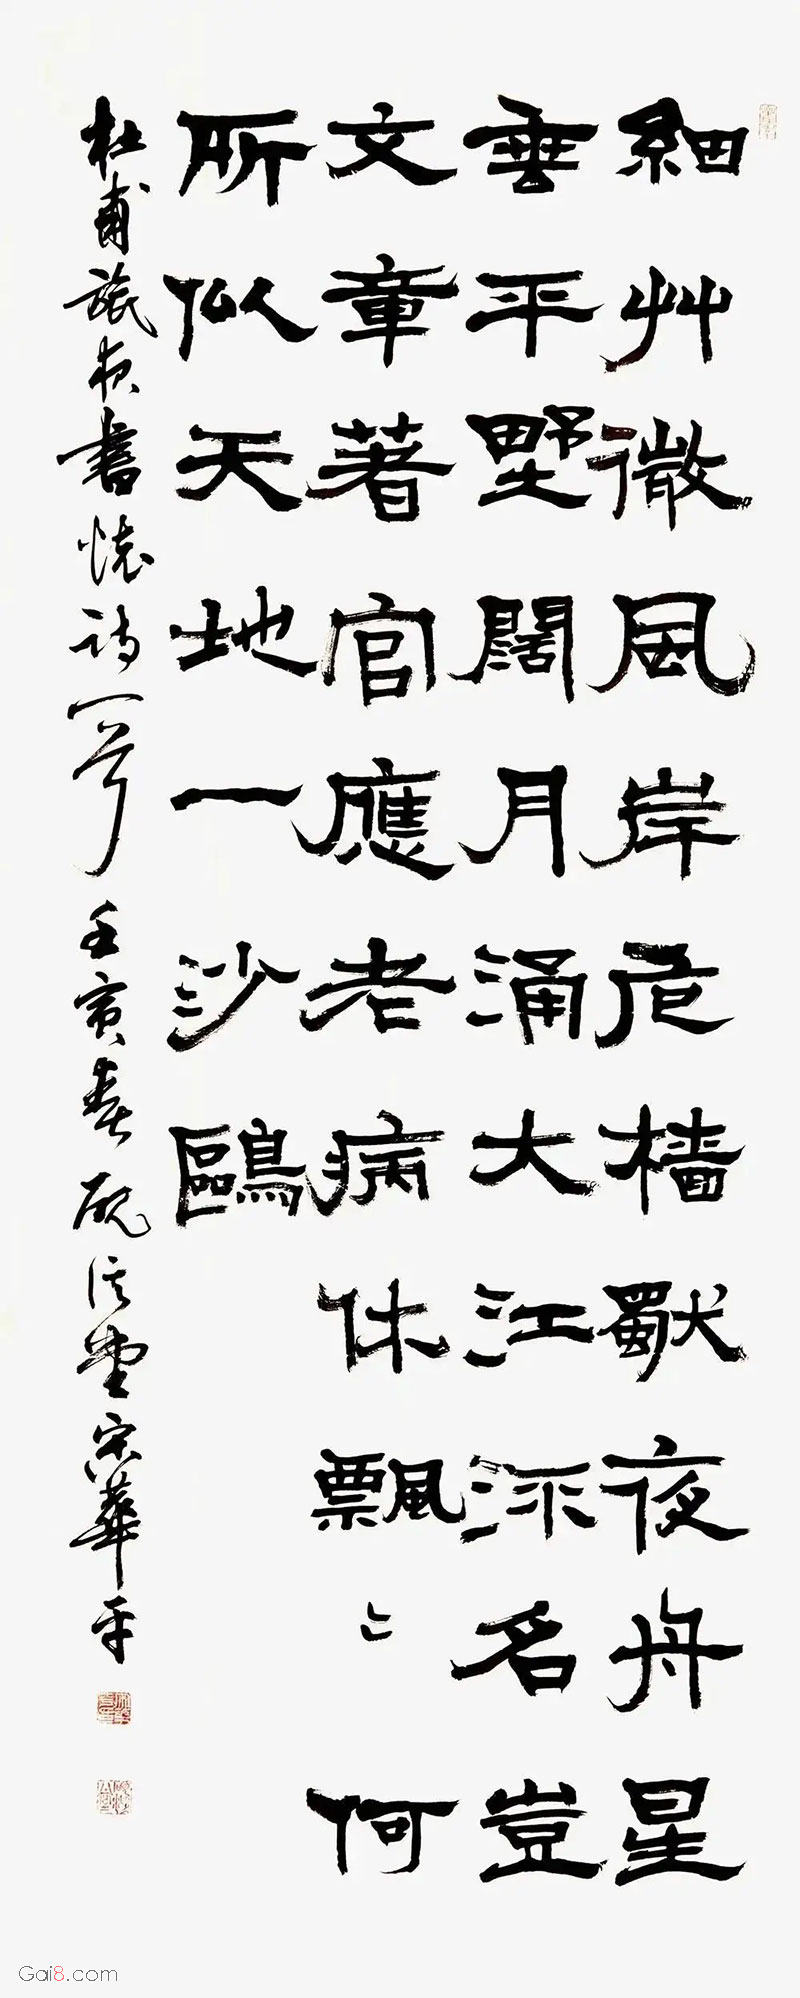 細艸微風岸危檣獨夜舟星
垂平野闊月涌大江流名豈
文章著官應老病休飄〻何
所似天地一沙鷗
杜甫旅夜書懷詩一首 壬寅春 堂 宋華平
Gai8.com